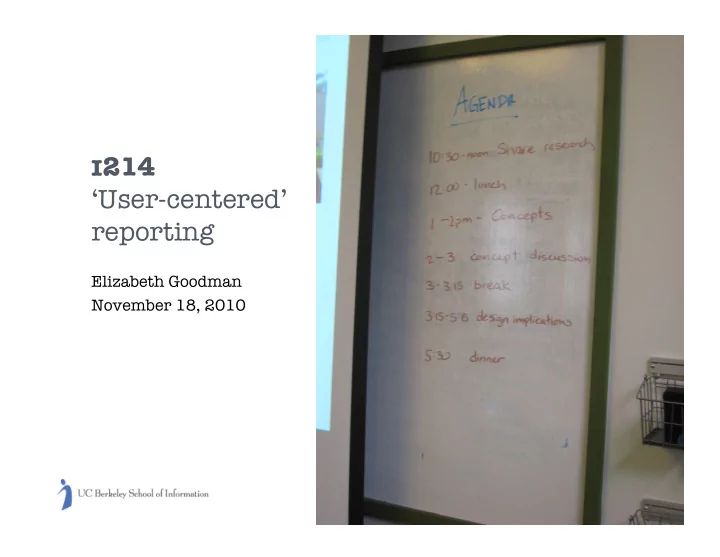 I214
‘User-centered’
reporting
Elizabeth Goodman
November 18, 2010
UC Berkeley School of Information
AGENDA
10:30-noon Share research
12:00 - lunch
1 -2pm - Concepts
2-3 concept discussion
3-3:15 break
3:15-5:15 design implications
5:30 dinner